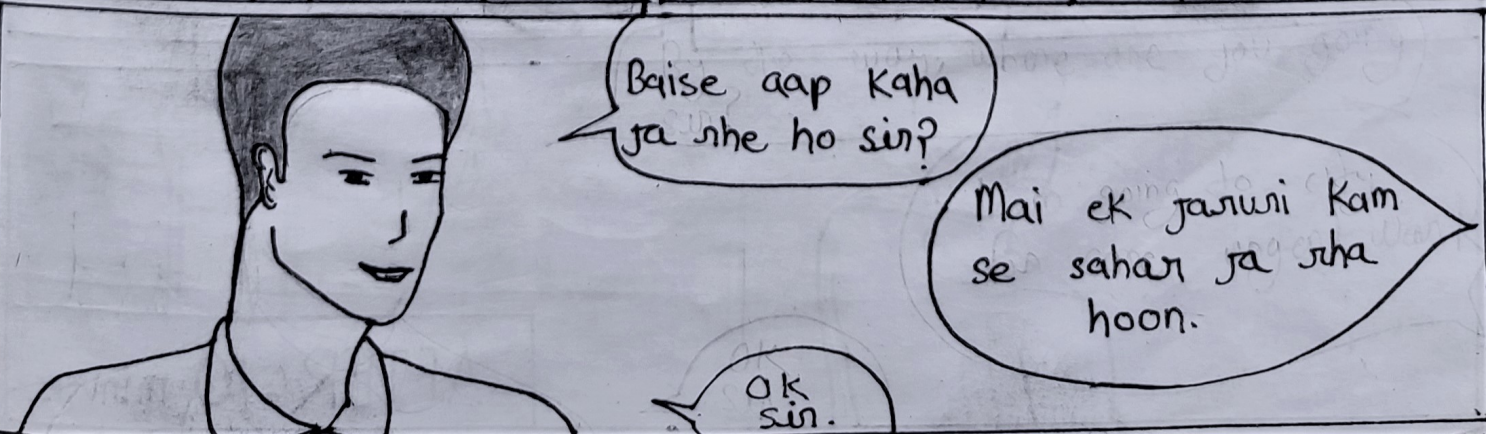 Baise aap kaha
ja rhe ho sir?
Mai ek jaruri kam
se sahar ja rha
hoon.
OK
sir.